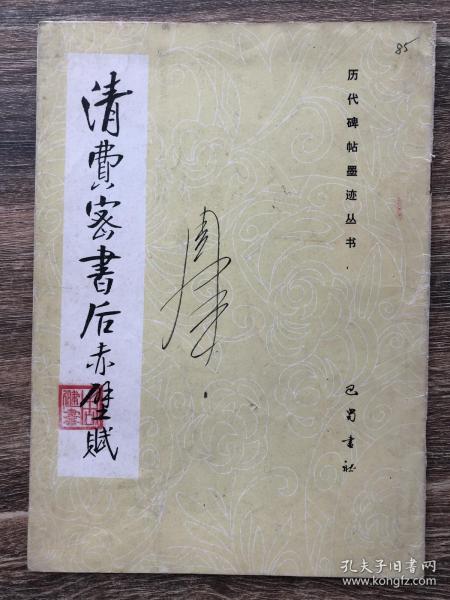 85
历代碑帖墨迹丛书
清費密書后赤壁賦
巴蜀書社
孔夫子旧书网
www.kongfz.com